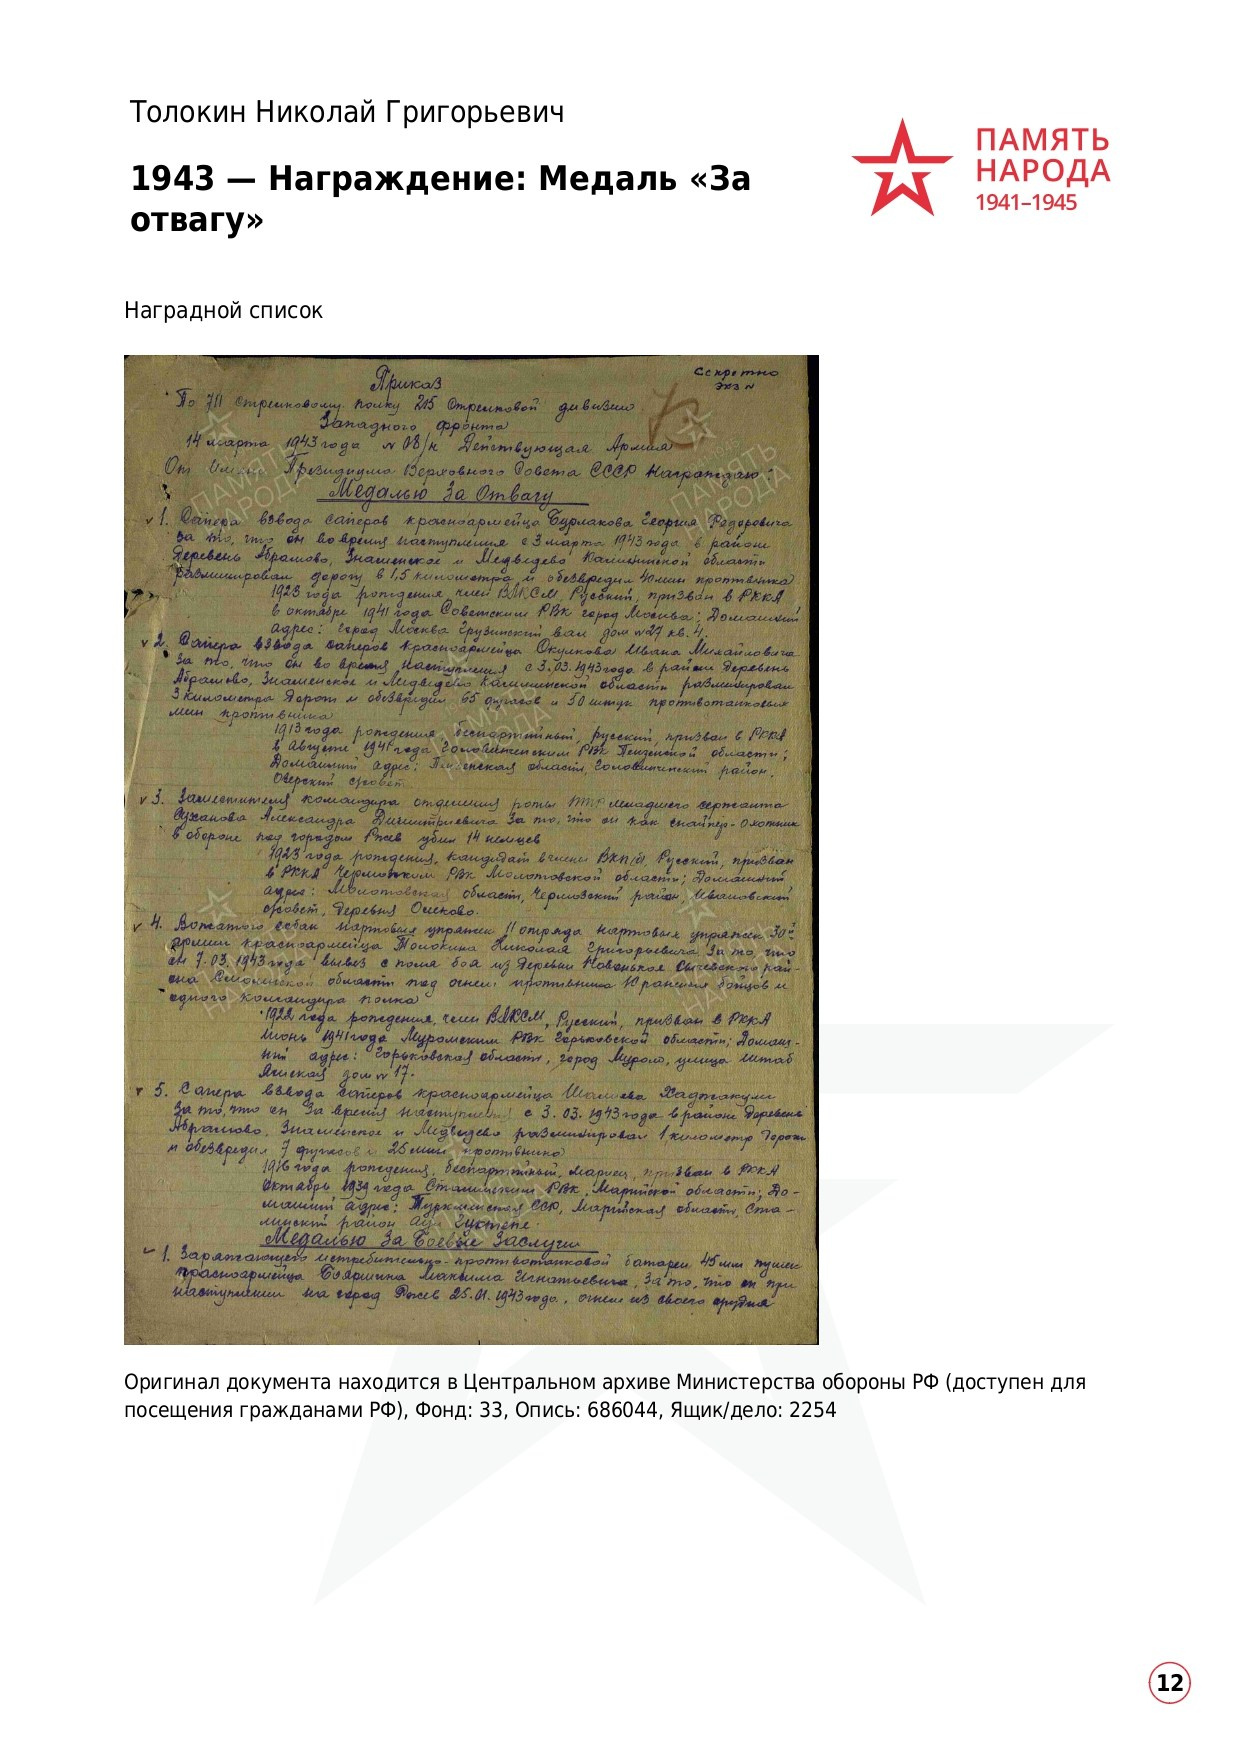 Толокин Николай Григорьевич
1943 — Награждение: Медаль «За
отвагу»
ПАМЯТЬ
НАРОДА
1941–1945
Наградной список
Секретно
Экз №
Приказ
По 711 Стрелковому полку 215 Стрелковой дивизии
Западного фронта
14 марта 1943 года № 08/н Действующая Армия
От Имени Президиума Верховного Совета СССР Награждаю:
Медалью За Отвагу
1. Сапера взвода саперов красноармейца Бурлакова Георгия Федоровича
за то, что он во время наступления с 3 марта 1943 года в районе
Деревень Абрамово, Знаменское и Медведево Калининской области
разминировал дорогу в 1,5 километра и обезвредил 40 мин противника
1923 года рождения, член ВЛКСМ, Русский, призван в РККА
в октябре 1941 года Советским РВК город Москва; Домашний
адрес: город Москва Грузинский вал дом №27 кв. 4.
2. Сапера взвода саперов красноармейца Окункова Ивана Михайловича
За то, что он во время наступления с 3.03.1943 года в районе Деревень
Абрамово, Знаменское и Медведево Калининской области разминировал
3 километра Дорог и обезвредил 65 фугасов и 50 штук противотанковых
мин противника
1913 года рождения беспартийный, русский, призван в РККА
в Августе 1941 года РВК Пензенской области;
Домашний адрес: Пензенская область, район,
Озерский с/совет
3. Заместителя командира отделения роты ПТР младшего сержанта
Суханова Александра Дмитриевича За то, что он как снайпер-охотник
в обороне под городом Ржев убил 14 немцев
1923 года рождения, кандидат в члены ВКП/б/, Русский, призван
в РККА Чермозским РВК Молотовской области; Домашний
адрес: Молотовская область, Чермозский район, Ивановский
с/совет, Деревня
4. Вожатого собак нартовых упряжек 11 отряда нартовых упряжек 30й
армии красноармейца Толокина Николая Григорьевича За то, что
он 7.03.1943 года вывез с поля боя из Деревни Сычевского рай-
она Смоленской области под огнем противника 10 раненых бойцов и
одного командира полка
1922 года рождения, член ВЛКСМ, Русский, призван в РККА
июнь 1941 года Муромским РВК Горьковской области; Домаш-
ний адрес: Горьковская область, город Муром, улица
дом № 17.
5. Сапера взвода саперов красноармейца
За то, что он За время наступления с 3.03.1943 года в районе Деревень
Абрамово, Знаменское и Медведево разминировал 1 километр Дороги
и обезвредил 7 фугасов и 25 мин противника
1916 года рождения, беспартийный, призван в РККА
Октябрь 1939 года Сталинским РВК, Марийской области; До-
машний адрес: Туркменская ССР, Марийская область, Ста-
линский район аул
Медалью За Боевые Заслуги
1. Заряжающего истребительно-противотанковой батареи 45 мм пушек
красноармейца Бояркина Максима Игнатьевича, За то, что он при
наступлении на город Ржев 25.01.1943 года, огнем из своего орудия
Оригинал документа находится в Центральном архиве Министерства обороны РФ (доступен для
посещения гражданами РФ), Фонд: 33, Опись: 686044, Ящик/дело: 2254
12